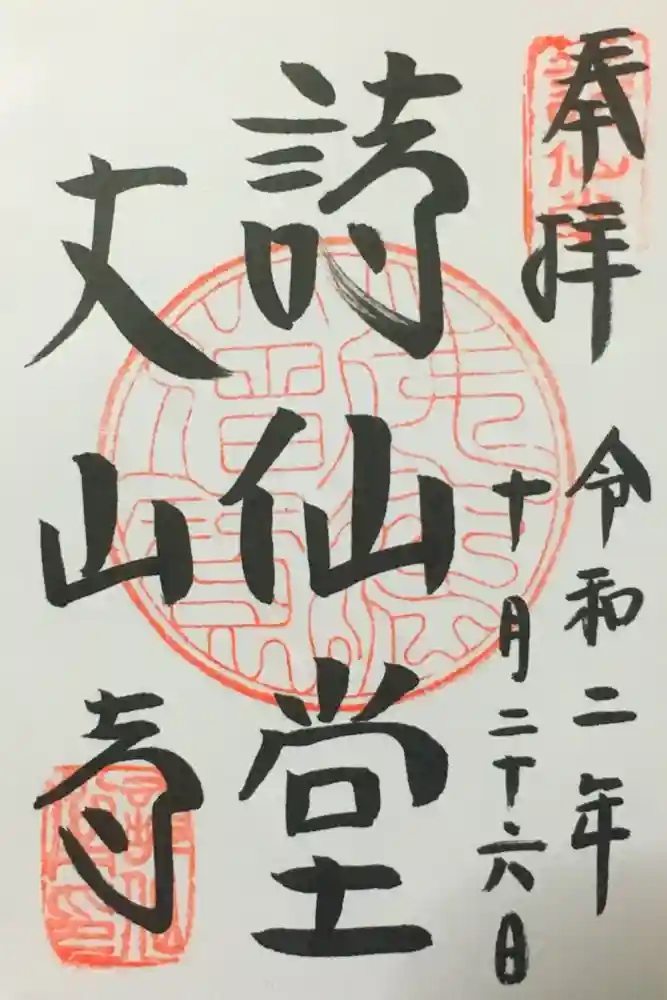 奉拝
令和二年
十月二十六日
詩仙堂
丈山寺
詩仙堂